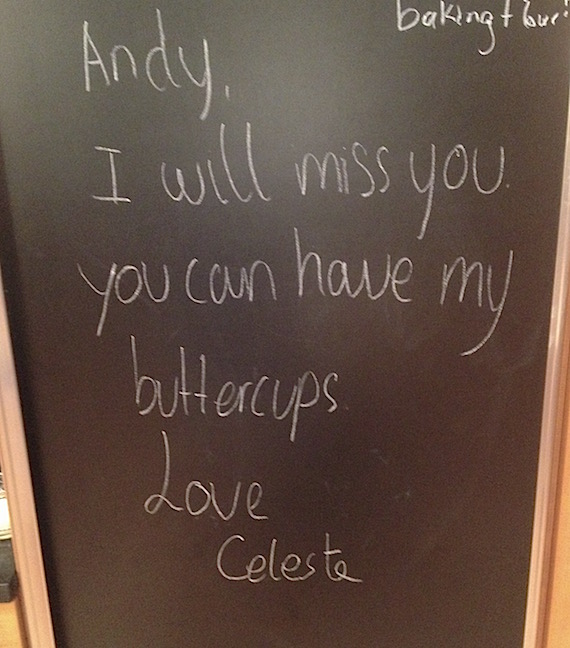 baking flour
Andy,
I will miss you.
you can have my
buttercups.
Love
Celeste